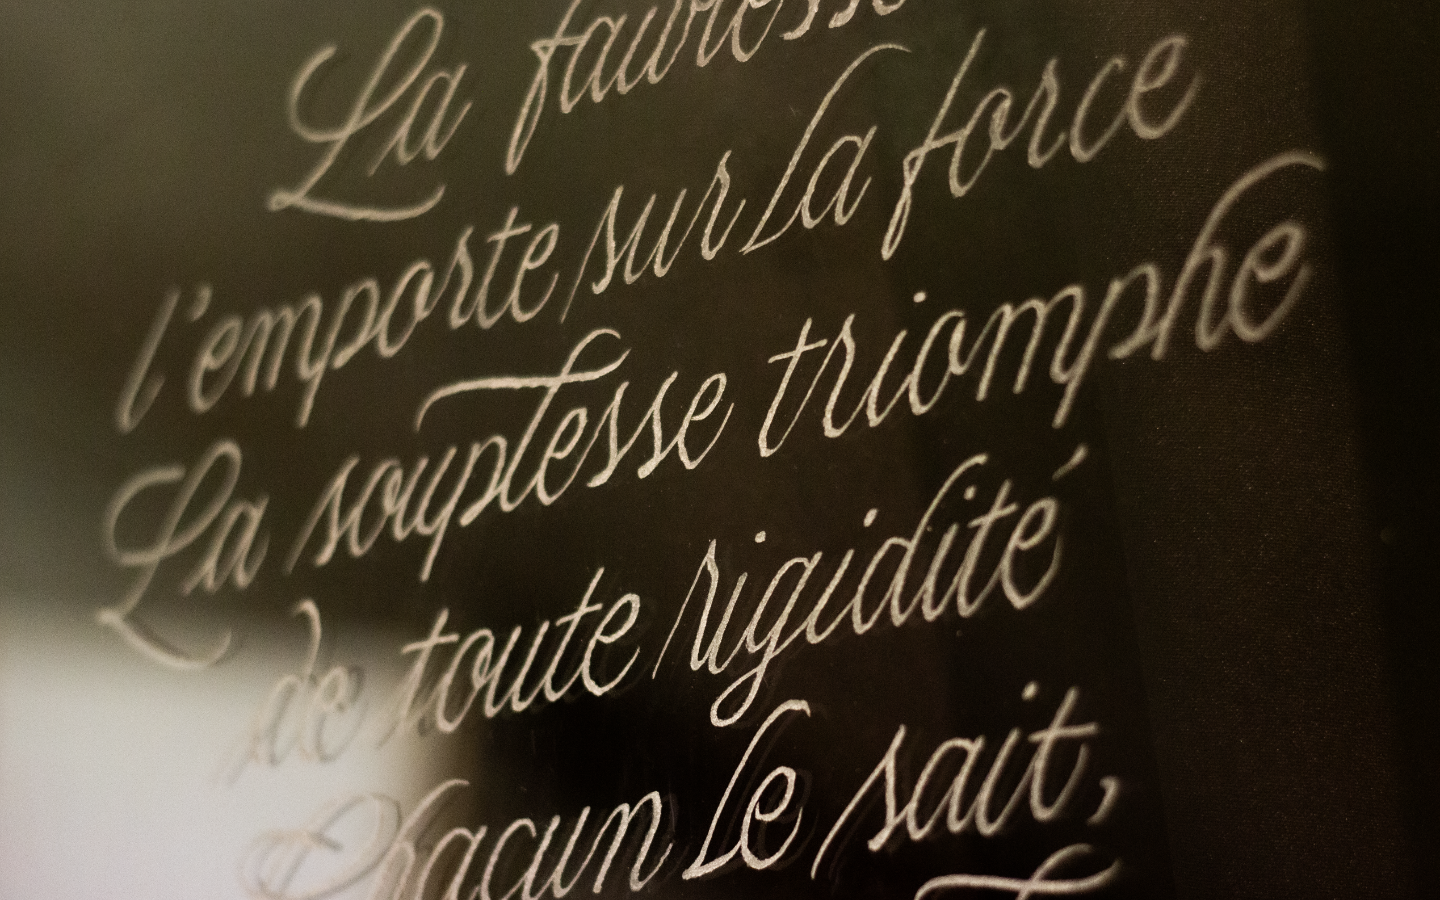 La faiblesse
l'emporte sur la force
La souplesse triomphe
de toute rigidité
Chacun le sait,